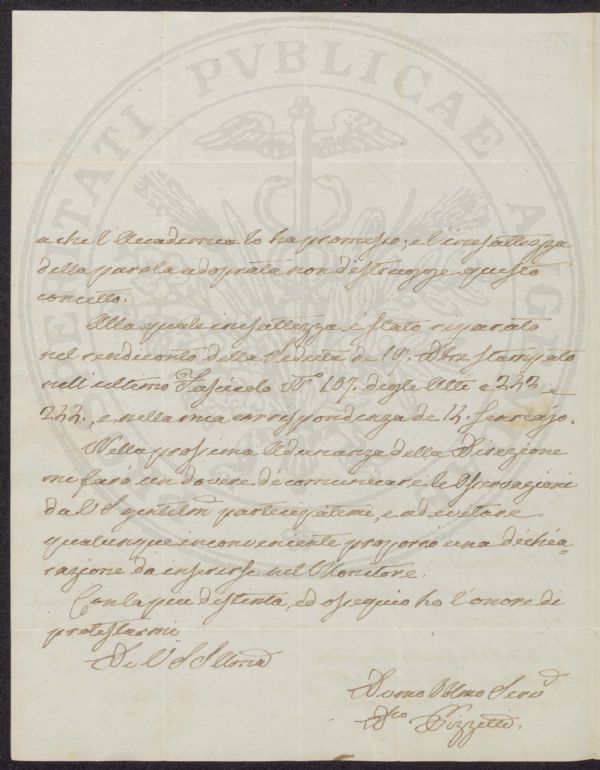 PROSPERITATI PVBLICAE AVGENDAE
a chi l'Accademia lo ha promesso; e l'inesattezza
della parola adoprata non distrugge questo
concetto.
Alla quale inesattezza è stato riparato
nel rendiconto della Seduta de 19. Xbre stampato
nell'ultimo Fascicolo N° 107. degli Atti a 242 e
, e nella mia corrispondenza de 14. Gennajo.
Nella prossima Adunanza della Direzione
mi farò un dovere di comunicare le Osservazioni
da V S gentilm partecipatemi, e ad evitare
qualunque inconveniente proporrò una dichia-
razione da inserirsi nel Monitore.
Con la più distinta, ed ossequio ho l'onore di
protestarmi
Di V S Illma
Devmo Obbmo Serv